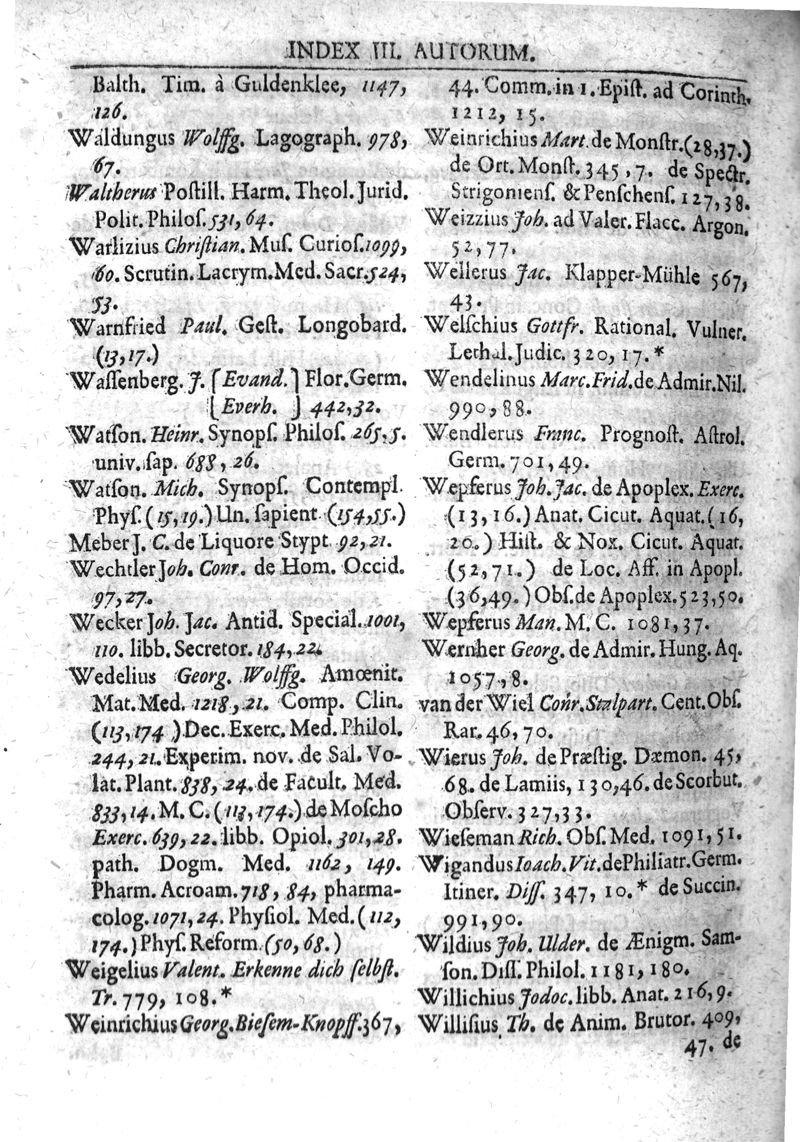 INDEX III. AUTORUM.
Balth. Tim. à Guldenklee, 1147,
126.
Waldungus Wolffg. Lagograph. 978,
67.
Waltherus Poſtill. Harm. Theol. Jurid.
Polit. Philoſ. 531, 64.
Warlizius Chriſtian. Muſ. Curioſ. 1099,
60. Scrutin. Lacrym. Med. Sacr. 524,
53.
Warnfried Paul. Geſt. Longobard.
(13,17.)
Waſſenberg. J. [Evand.] Flor. Germ.
[Everh. ] 442,32.
Watſon. Heinr. Synopſ. Philoſ. 265,5.
univ. ſap. 688, 26.
Watſon. Mich. Synopſ. Contempl.
Phyſ. (15,19.) Un. ſapient. (154,55.)
Meber J. C. de Liquore Stypt. 92,21.
Wechtler Joh. Conr. de Hom. Occid.
97,27.
Wecker Joh. Jac. Antid. Special. 1001,
110. libb. Secretor. 184,22.
Wedelius Georg. Wolffg. Amœnit.
Mat. Med. 1218, 21. Comp. Clin.
(113,174.) Dec. Exerc. Med. Philol.
244, 21. Experim. nov. de Sal. Vo-
lat. Plant. 838, 24. de Facult. Med.
833,14. M. C. (113,174.) de Moſcho
Exerc. 639, 22. libb. Opiol. 301,28.
path. Dogm. Med. 1162, 149.
Pharm. Acroam. 718, 84, pharma-
colog. 1071, 24. Phyſiol. Med. (112,
174.) Phyſ. Reform. (50,68.)
Weigelius Valent. Erkenne dich ſelbſt.
Tr. 779, 108.*
Weinrichius Georg. Bieſem-Knopff. 367,
44. Comm. in 1. Epiſt. ad Corinth.
1212, 15.
Weinrichius Mart. de Monſtr. (28,37.)
de Ort. Monſt. 345, 7. de Spectr.
Strigonienſ. & Penſchenſ. 127,38.
Weizzius Joh. ad Valer. Flacc. Argon.
52,77.
Wellerus Jac. Klapper-Mühle 567,
43.
Welſchius Gottfr. Rational. Vulner.
Lethal. Judic. 320, 17.*
Wendelinus Marc. Frid. de Admir. Nil.
990, 88.
Wendlerus Franc. Prognoſt. Aſtrol.
Germ. 701, 49.
Wepferus Joh. Jac. de Apoplex. Exerc.
(13, 16.) Anat. Cicut. Aquat. (16,
20.) Hiſt. & Nox. Cicut. Aquat.
(52,71.) de Loc. Aff. in Apopl.
(36,49.) Obſ. de Apoplex. 523,50.
Wepferus Man. M. C. 1081, 37.
Wernher Georg. de Admir. Hung. Aq.
1057, 8.
van der Wiel Conr. Stalpart. Cent. Obſ.
Rar. 46, 70.
Wierus Joh. de Præſtig. Dæmon. 45,
68. de Lamiis, 130,46. de Scorbut.
Obſerv. 327,33.
Wieſeman Rich. Obſ. Med. 1091, 51.
Wigandus Ioach. Vit. de Philiatr. Germ.
Itiner. Diſſ. 347, 10.* de Succin.
991,90.
Wildius Joh. Ulder. de Ænigm. Sam-
ſon. Diſſ. Philol. 1181, 180.
Willichius Jodoc. libb. Anat. 216,9.
Williſius Th. de Anim. Brutor. 409,
47. de